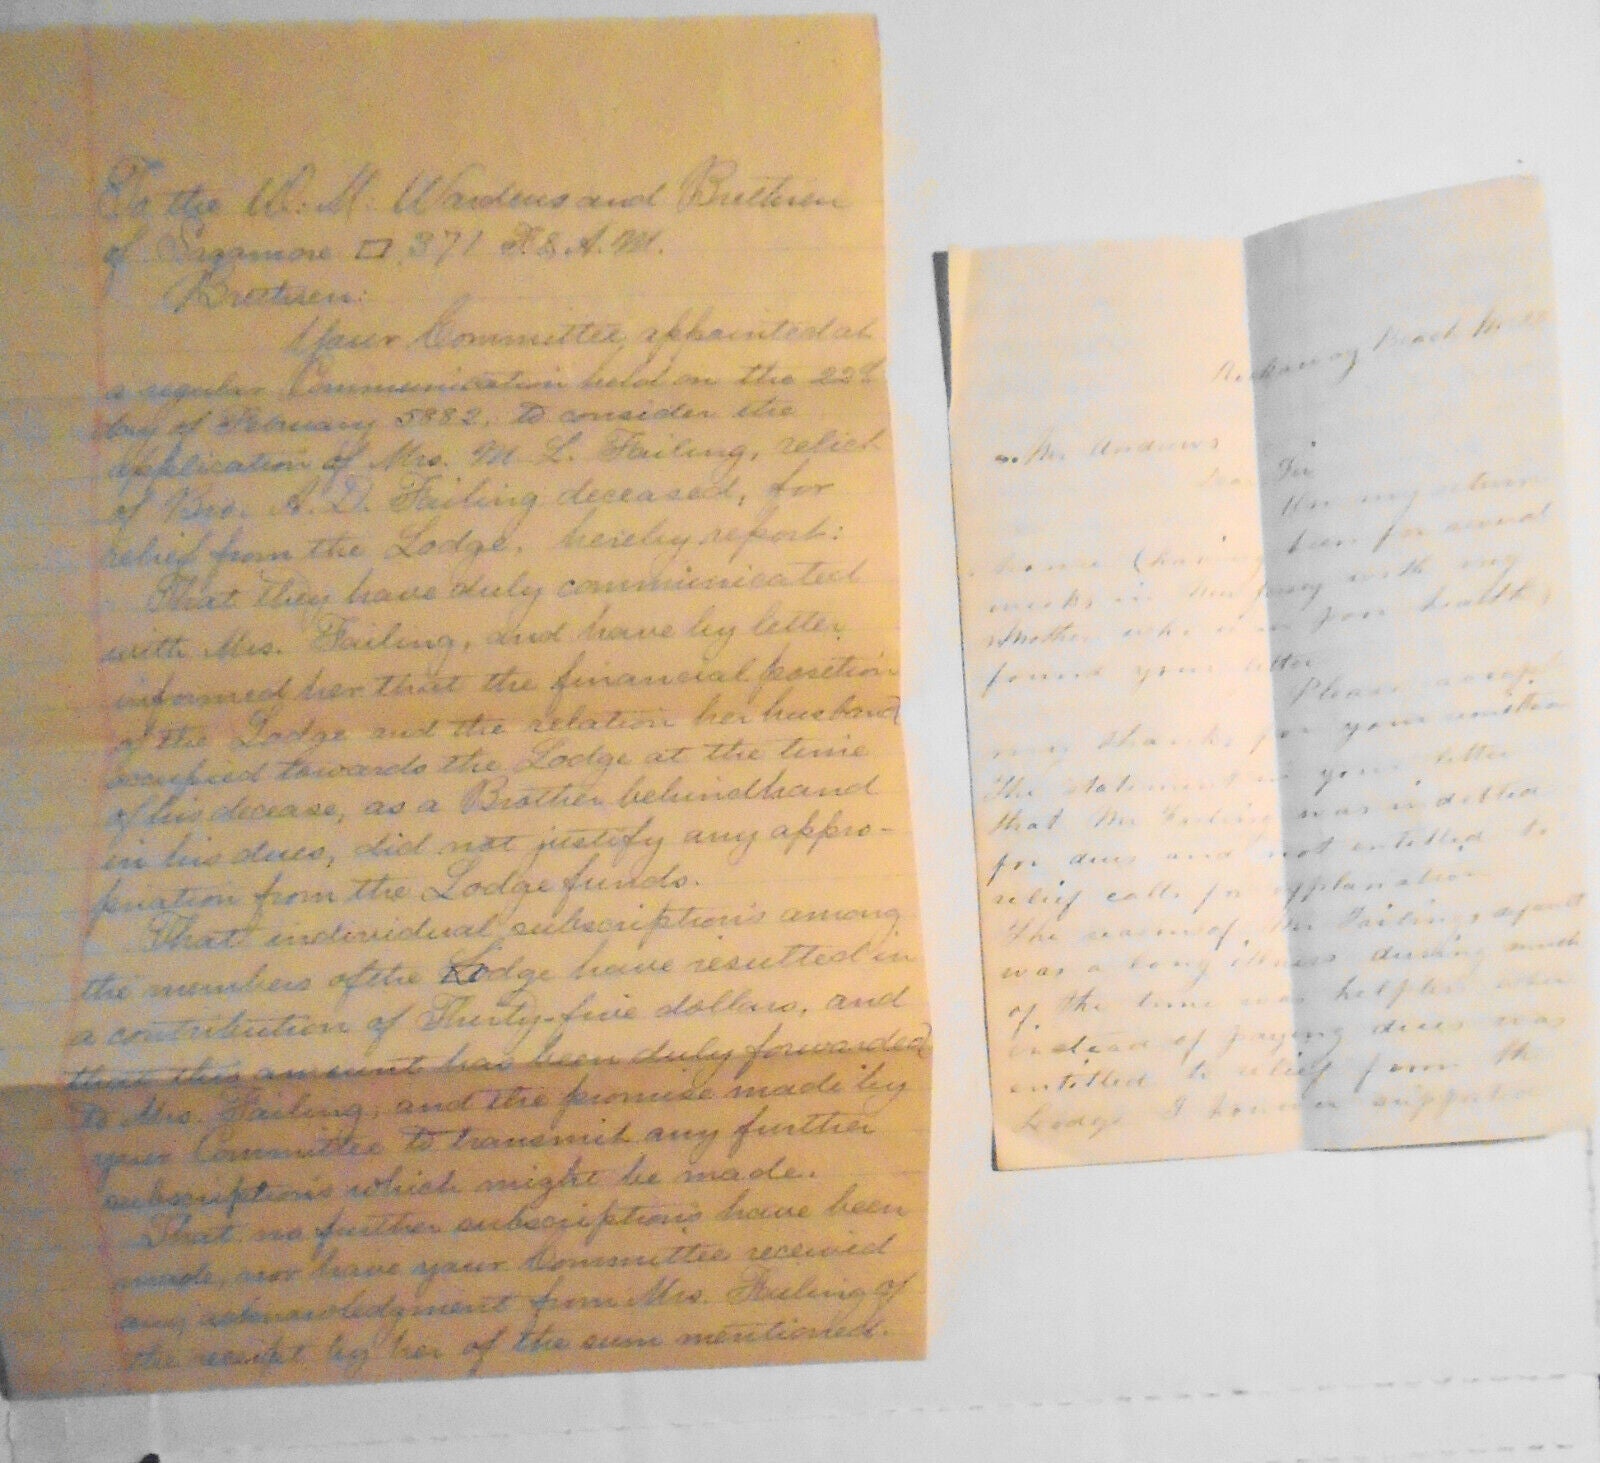 To the W. M. Wardens and Brethren
of Sagamore □ 371 F. & A. M.
Brethren:
Your Committee, appointed at
a regular Communication held on the 22d
day of February 5882, to consider the
application of Mrs. M L. Failing, relict
of Bro. A. D. Failing deceased, for
relief from the Lodge, hereby report:
That they have duly communicated
with Mrs. Failing, and have by letter
informed her that the financial position
of the Lodge and the relation her husband
occupied towards the Lodge at the time
of his decease, as a Brother behindhand
in his dues, did not justify any appro-
priation from the Lodge funds.
That individual subscriptions among
the members of the Lodge have resulted in
a contribution of Thirty-five dollars, and
that this amount has been duly forwarded
to Mrs. Failing, and the promise made by
your Committee to transmit any further
subscriptions which might be made.
That no further subscriptions have been
made, nor have your Committee received
any acknowledgment from Mrs. Failing of
the receipt by her of the sum mentioned.
Rockaway Beach
Mr Andrews
Dear Sir
On my return
home (having been for several
weeks in New Jersey with my
Mother who is in poor health)
found your letter
Please accept
my thanks for your
The statement in your letter
that Mr Failing was indebted
for dues and not entitled to
relief calls for explanation
The reason of Mr Failings
was a long illness during much
of the time was helpless
instead of paying dues was
entitled to relief from the
Lodge I however supported